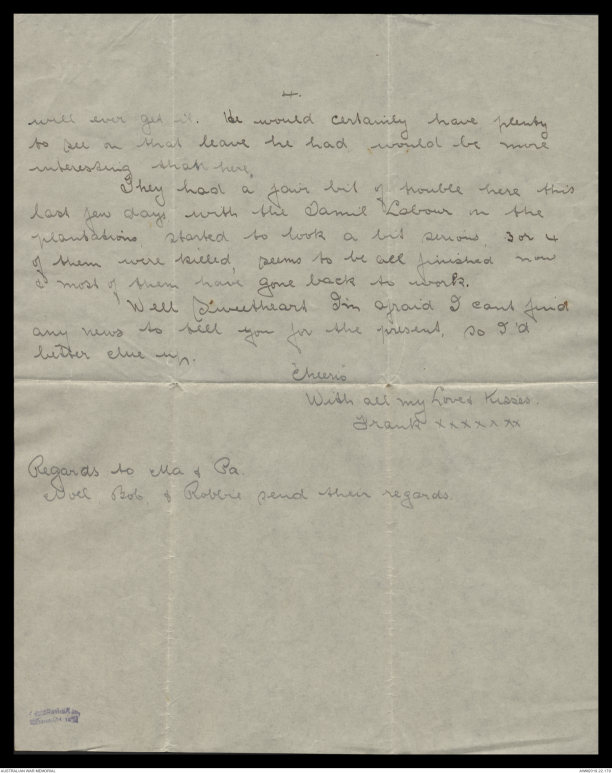 4.
will ever get it. He would certainly have plenty
to see on that leave he had would be more
interesting than here.
They had a fair bit of trouble here this
last few days with the Tamil Labour on the
plantations, started to look a bit serious, 3 or 4
of them were killed, seems to be all finished now
& most of them have gone back to work.
Well Sweetheart I'm afraid I cant find
any news to tell you for the present, so I'd
better clue up.
Cheerio
With all my Love & Kisses.
Frank xxxxxxx
Regards to Ma & Pa.
Noel, Bob, & Robbie send their regards.
AUSTRALIAN WAR MEMORIAL